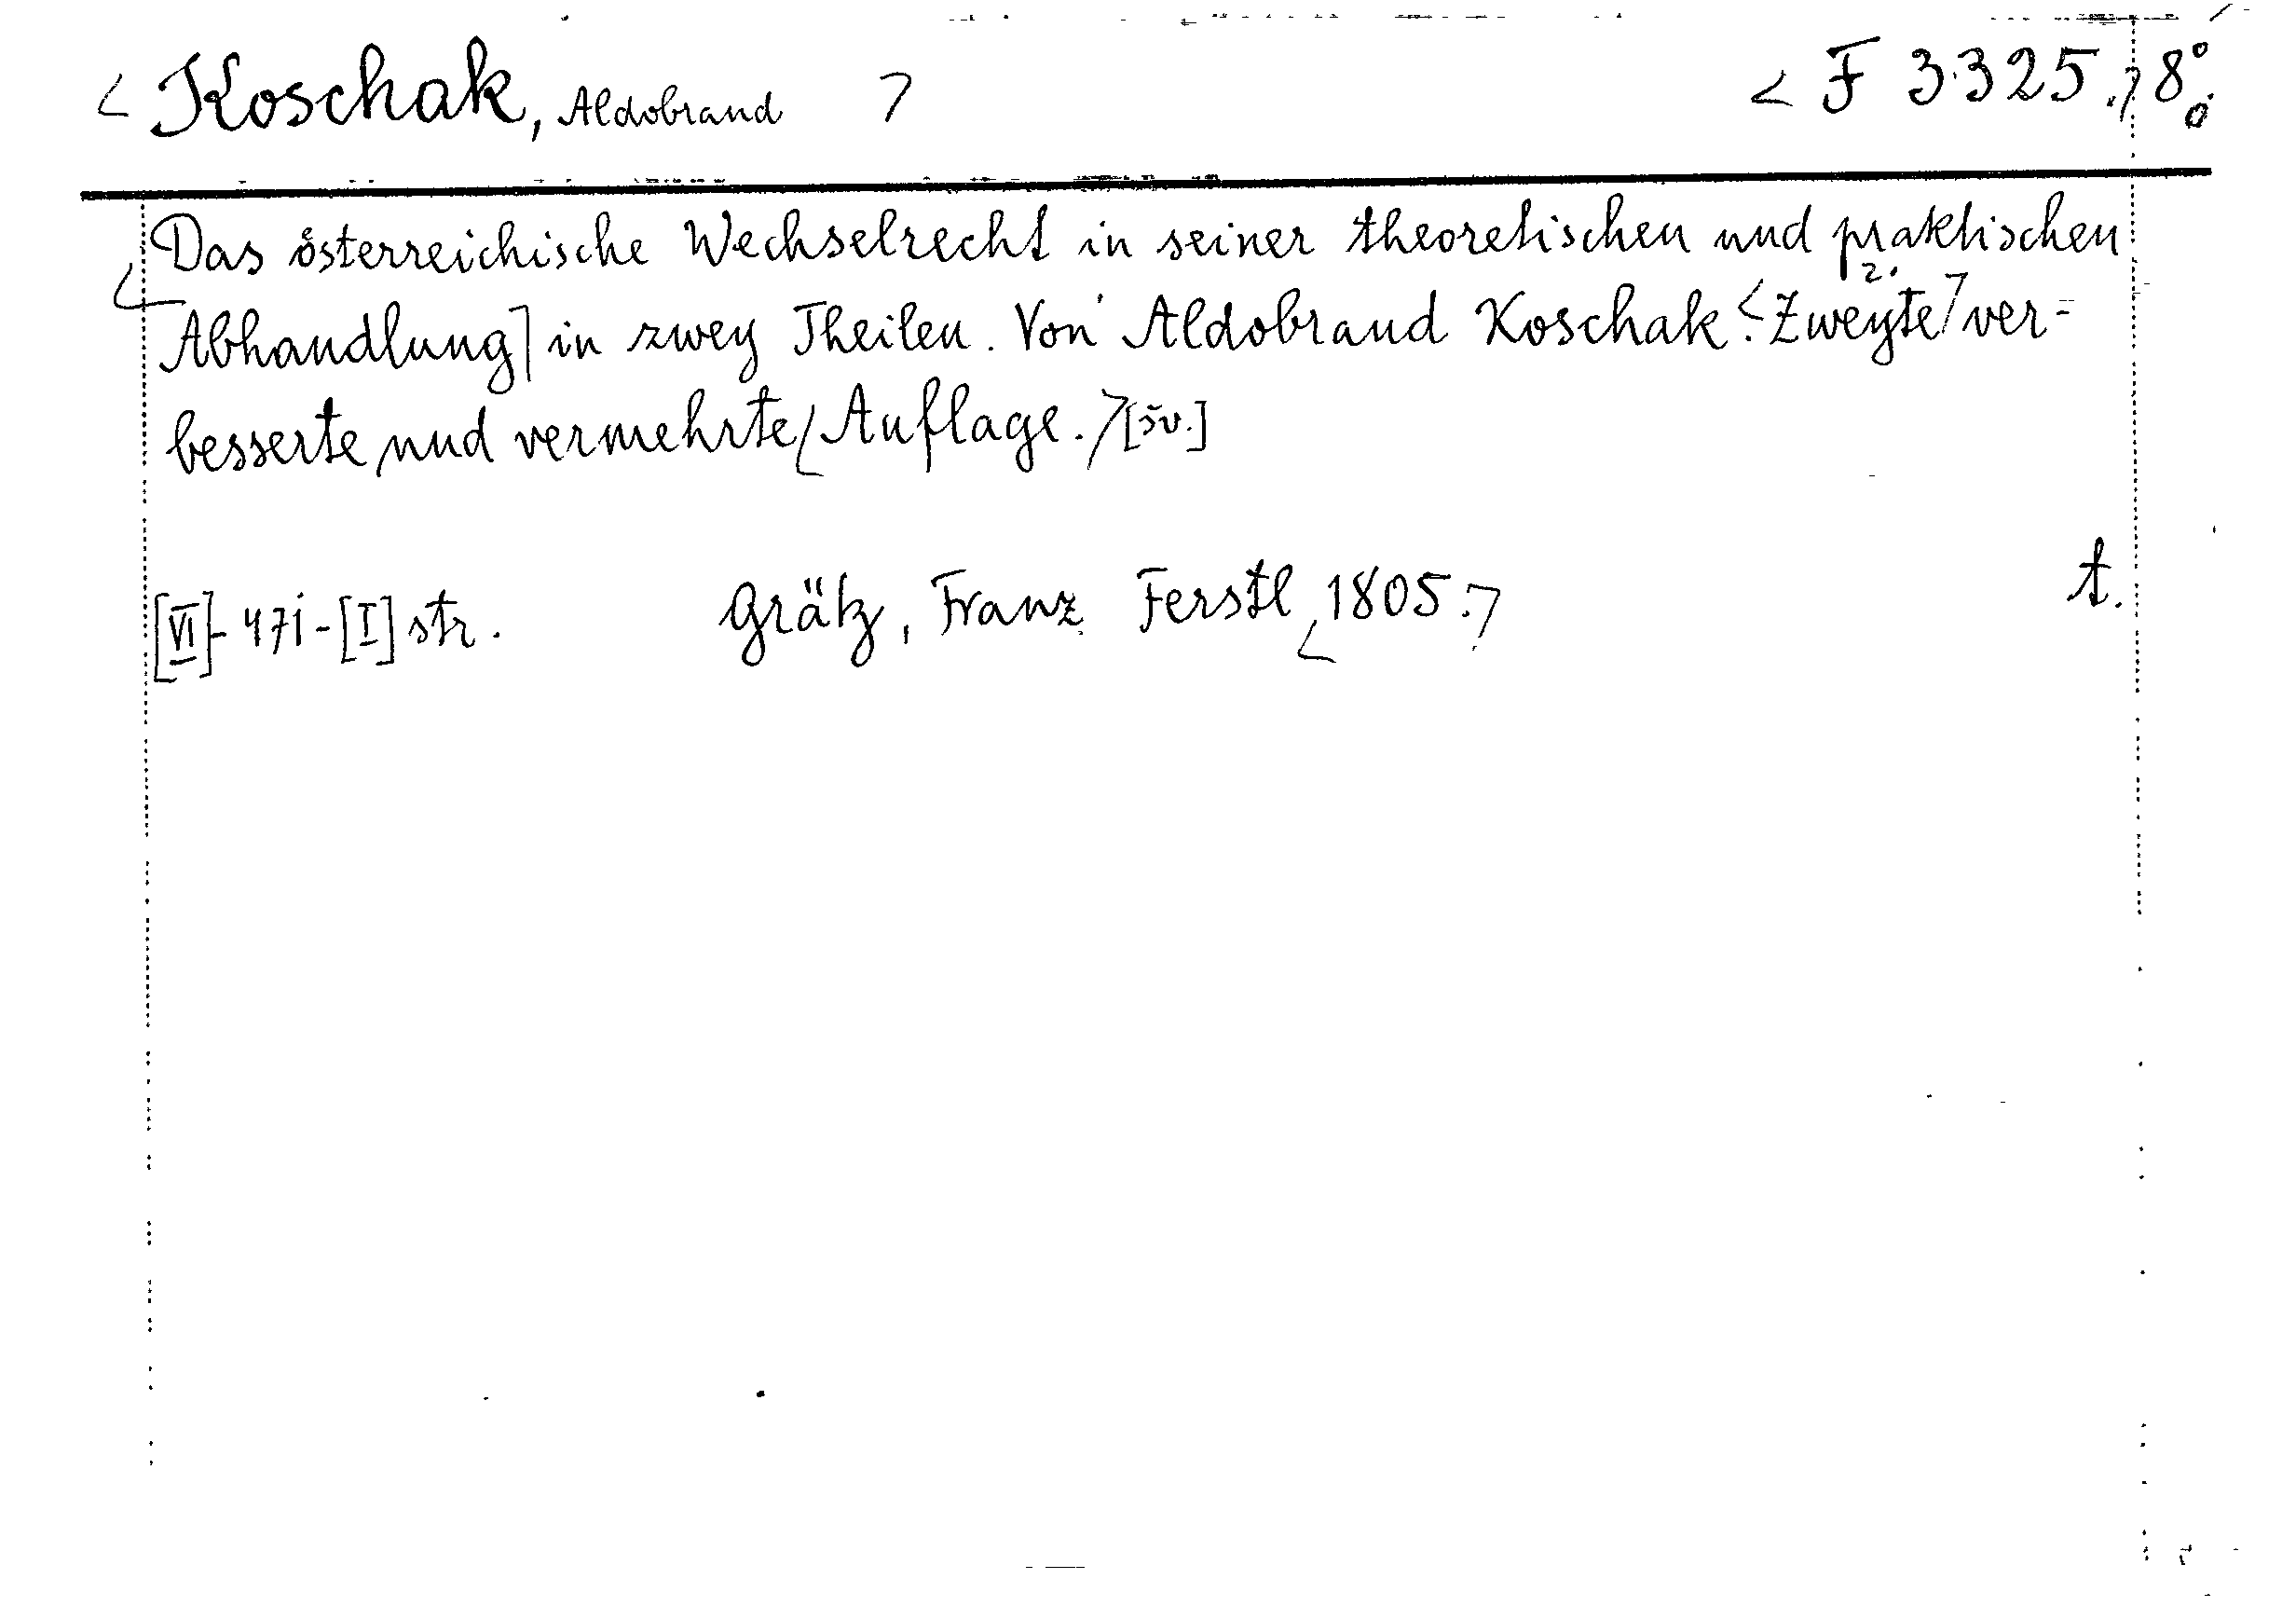 < Koschak, Aldobrand > < F 3.325.> 8°.
Das österreichische Wechselrecht in seiner theoretischen und praktischen
Abhandlung] in zwey Theilen. Von Aldobrand Koschak. <Zweyte> ver-
2.
besserte und vermehrte <Auflage.> [šv.]
[VI]-471-[I] str. Grätz, Franz Ferstl, <1805.> t.